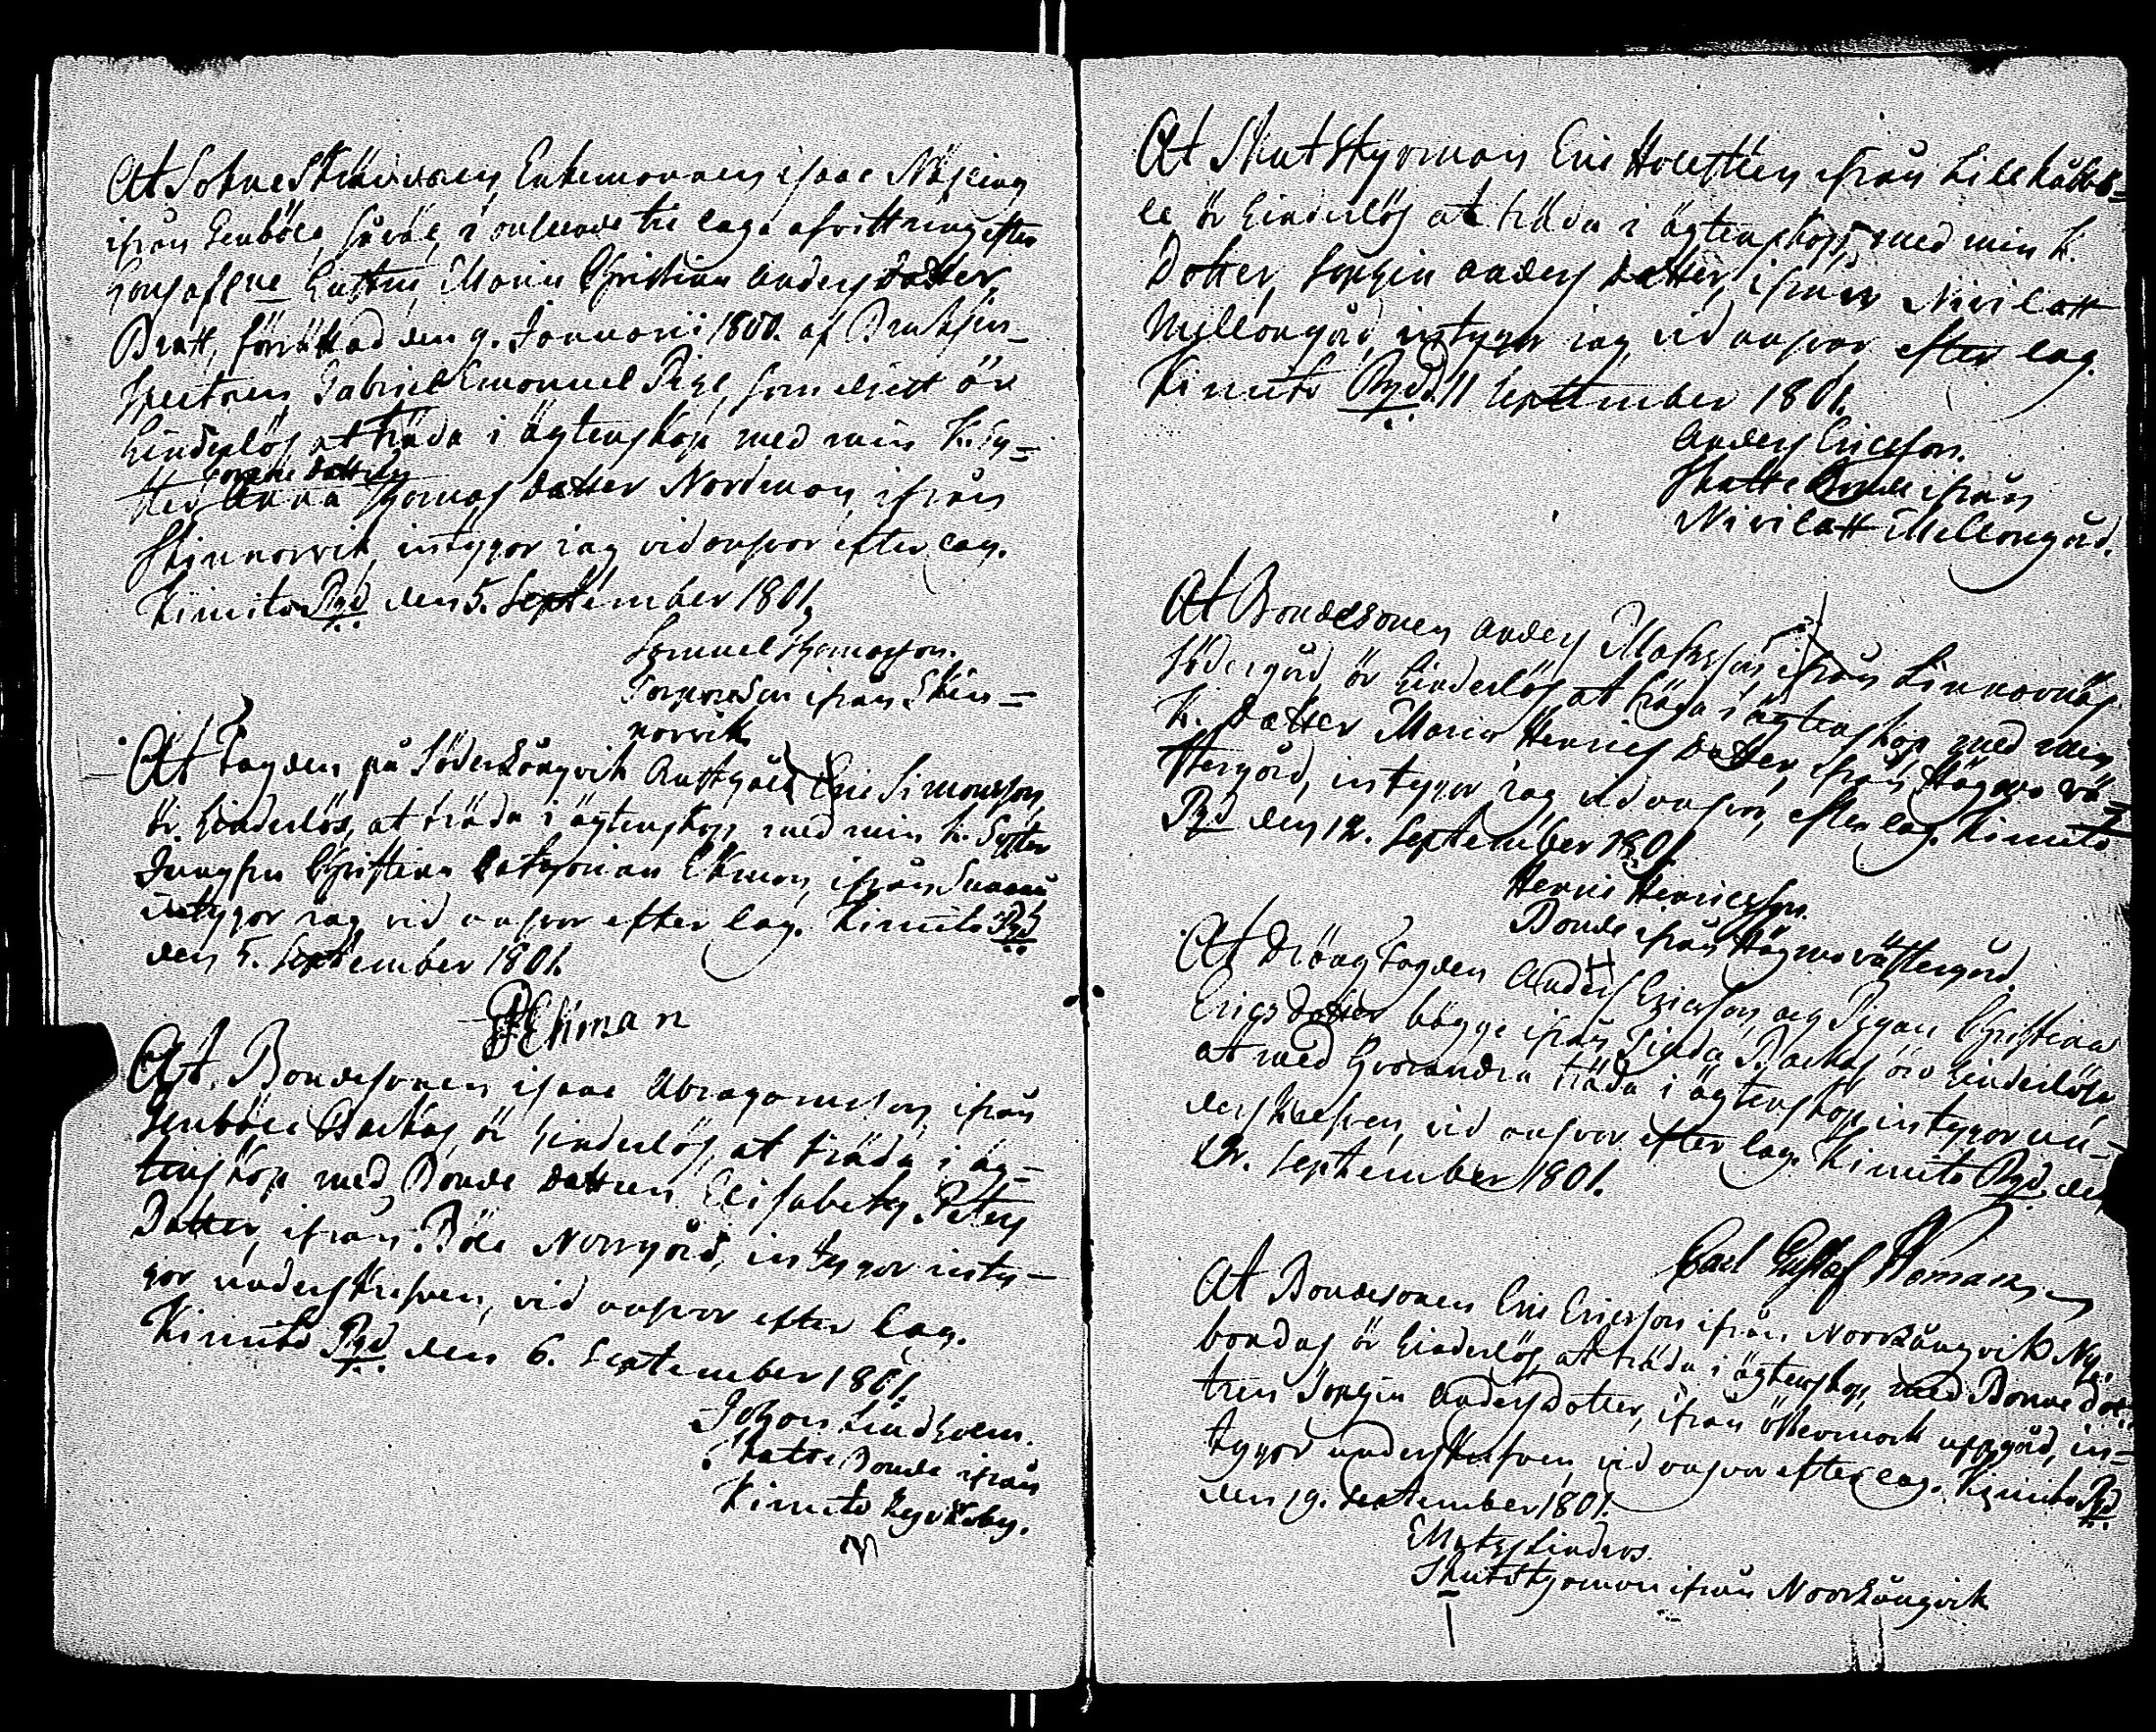 At Sokneskräddaren Enkemannen Isaac Nåjeing
ifrån Genböle, såväl i anseende til laga afvittring efter
hans afledne hustru Maria Christina Anders datter
Bratt, förrättad den 9. Januarii 1801. af Bruksin-
spectoren Gabriel Emanuel Pige, som eljest är
hinderlös at träda i ägtenskap med min K. Sy-
ster Anna Thomas datter Nordman, ifrån
Skinnarvik, intygar jag vid ansvar efter lag.
Kimito Pgd den 5. September 1801.
Samuel Thomasson.
Torparedren ifrån Skin-
narvik.
At Fogden på Söderlångvik Rusthåll Eric Simonsson,
är hinderlös, at träda i ägtenskap med min k. Syster
Jungfru Christina Catharina Ekman, ifrån
intygar jag vid ansvar efter lag. Kimito Pgd
den 5. September 1801.
P Ekman
At Bondesonen Isaac Abrahamsson, ifrån
Genböle Backas är hinderlös, at träda i äg-
tenskap med Bonde dottren Elisabeth Peters
Datter, ifrån Böle Norrgård, intygar inty-
gar underskrifven, vid ansvar efter lag.
Kimito Pgd den 6. September 1801.
Johan Lindholm.
Skatte Bonde ifrån
Kimito Kyrkoby.
At Skutskyrman Eric Holsten ifrån Lillhåll-
le är hinderlös at träda i ägtenskap, med min k.
Dotter, Sophia Anders Datter, ifrån Nivilatt
Mellangård, intygar jag, vid ansvar efter lag.
Kimito Pgd. 11 September 1801.
Anders Ericsson.
Skatte Bonde ifrån
Nivilatt Mellangård.
At Bondesonen Anders Matsson, ifrån Linnarnäs
Södergård är hinderlös at träda i ägtenskap med min
K. Datter Maria Henrics Datter, ifrån Högmo Vä-
stergård, intygar jag vid ansvar, efter lag. Kimito
Pgd den 12. September 1801
Henric Henricsson.
Bonde ifrån Högmo västergård.
At Drängfogden Anders Ericsson och Pigan Christina
Ericsdotter bägge ifrån Tjuda Backas äro hinderlöse,
at med hvarandra träda i ägtenskap, intygar un-
derskrefven, vid ansvar efter lag. Kimito Pgd. den
12. September 1801.
Carl Gustaf Homan
At Bondesonen Eric Ericsson ifrån Norrlångvik Ny-
bondas är hinderlös, at träda i ägtenskap, med Bonde dot-
tren Sophia Anders Dotter, ifrån Östermark uppgård, in-
tygar underskrifven, vid ansvar efter lag. Kimito Pgd
den 19. September 1801.
Mats Linders.
Skutskyrman ifrån Norrlångvik